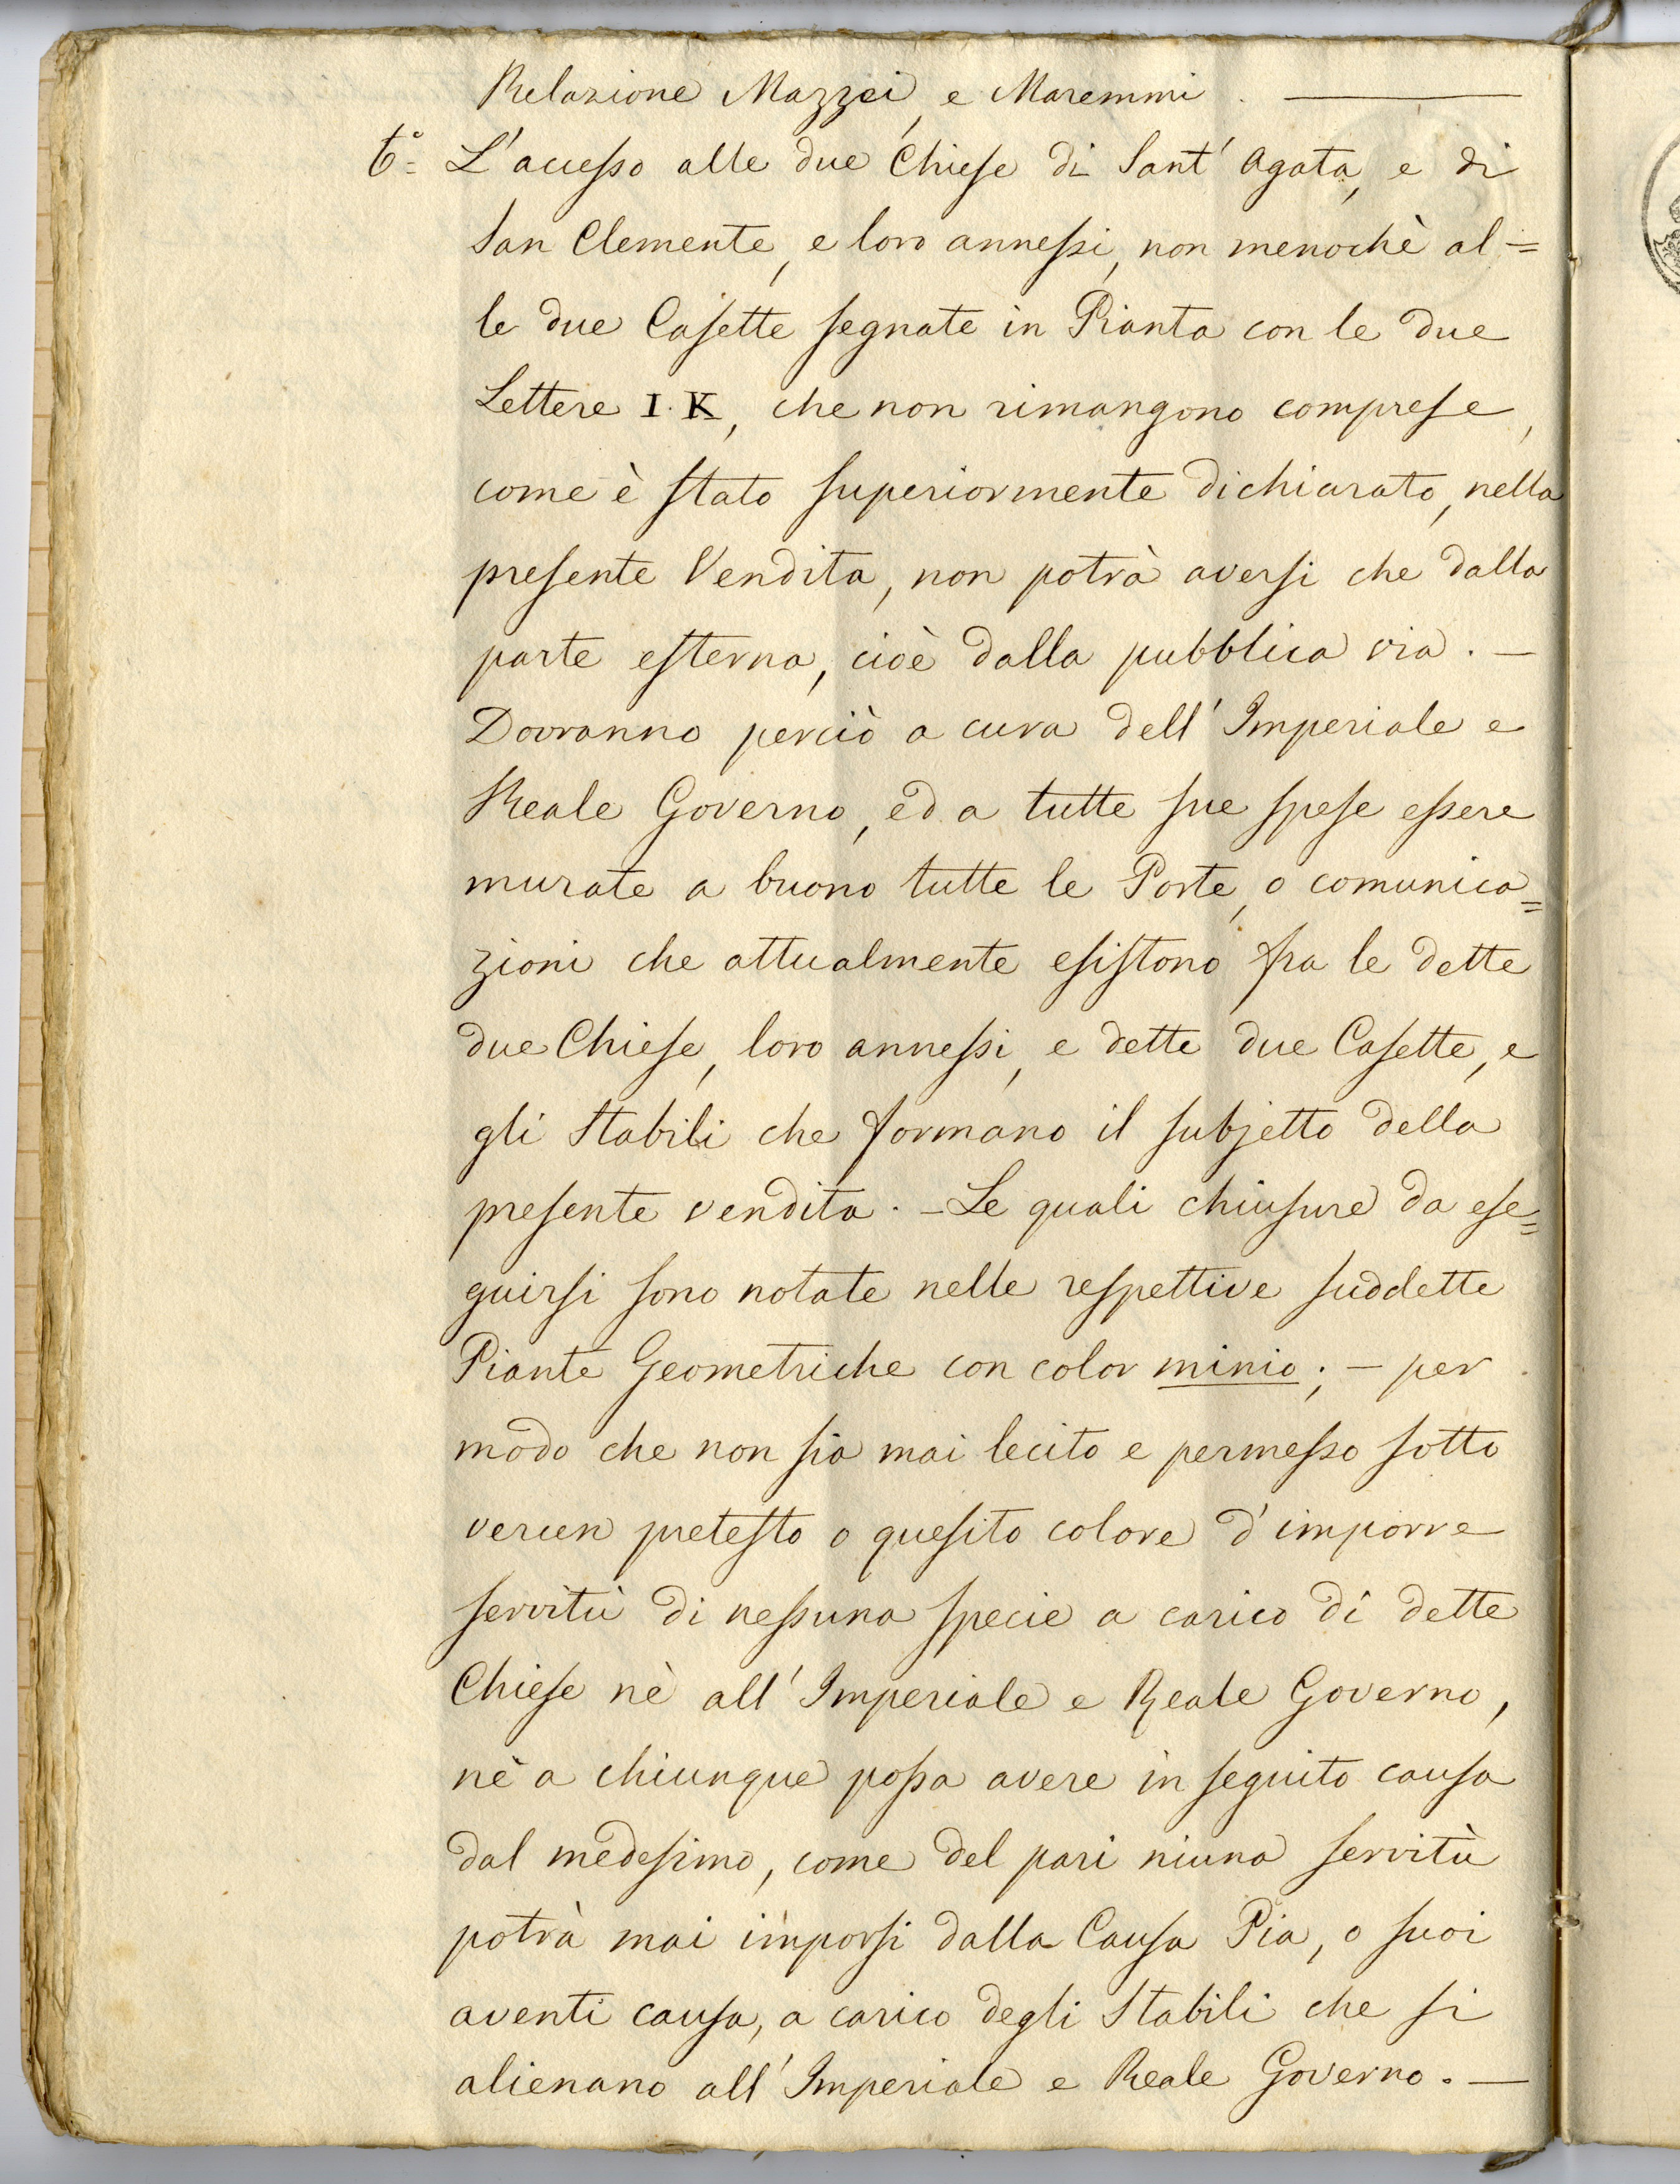 Relazione Mazzei, e Maremmi . ——
6.° L'accesso alle due Chiese di Sant' Agata, e di
San Clemente, e loro annessi, non menochè al=
le due Casette segnate in Pianta con le due
Lettere I. K, che non rimangono comprese,
come è stato superiormente dichiarato, nella
presente Vendita, non potrà aversi che dalla
parte esterna, cioè dalla pubblica via. —
Dovranno perciò a cura dell' Imperiale e
Reale Governo, ed a tutte sue spese essere
murate a buono tutte le Porte, o comunica=
zioni che attualmente esistono fra le dette
due Chiese, loro annessi, e dette due Casette, e
gli Stabili che formano il subjetto della
presente vendita. — Le quali chiusure da ese=
guirsi sono notate nelle respettive suddette
Piante Geometriche con color minio; — per
modo che non sia mai lecito e permesso sotto
verun pretesto o quesito colore d'imporre
servitù di nessuna specie a carico di dette
Chiese nè all' Imperiale e Reale Governo,
nè a chiunque possa avere in seguito causa
dal medesimo, come del pari niuna servitù
potrà mai imporsi dalla Causa Pia, o suoi
aventi causa, a carico degli Stabili che si
alienano all' Imperiale e Reale Governo. —